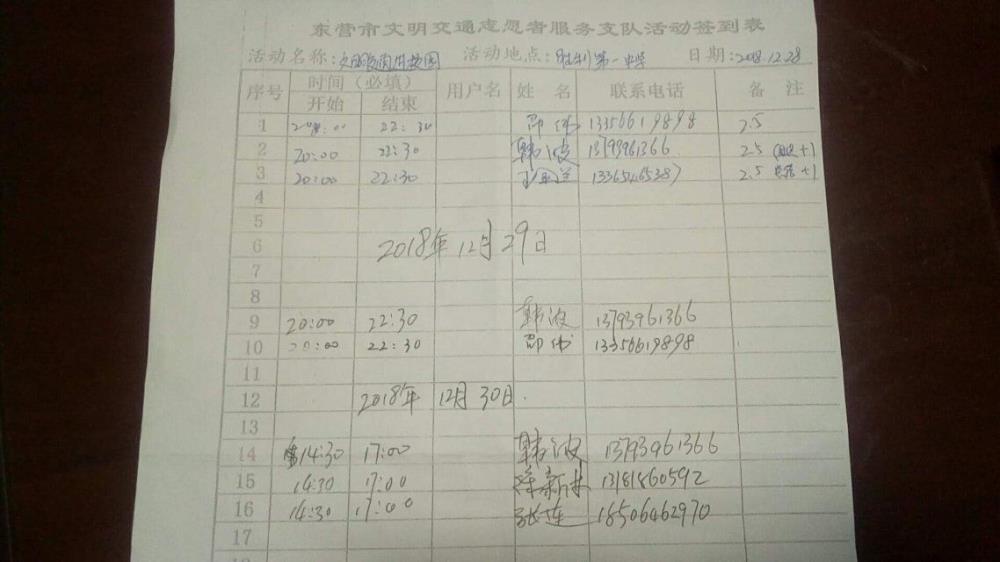 东营市文明交通志愿者服务支队活动签到表
活动名称: 活动地点: 胜利第一中学 日期: 2018.12.28
序号 时间（必填） 用户名 姓 名 联系电话 备 注
开始 结束
1 20:00 22:30 邵伟 13356619898 2.5
2 20:00 22:30 韩波 13793961366 2.5
3 20:00 22:30 13365465387 2.5
4
5
6 2018年12月29日
7
8
9 20:00 22:30 韩波 13793961366
10 20:00 22:30 邵伟 13356619898
11
12 2018年 12月30日.
13
14 14:30 17:00 韩波 13793961366
15 14:30 17:00 13181860592
16 14:30 17:00 张莲 18506462970
17